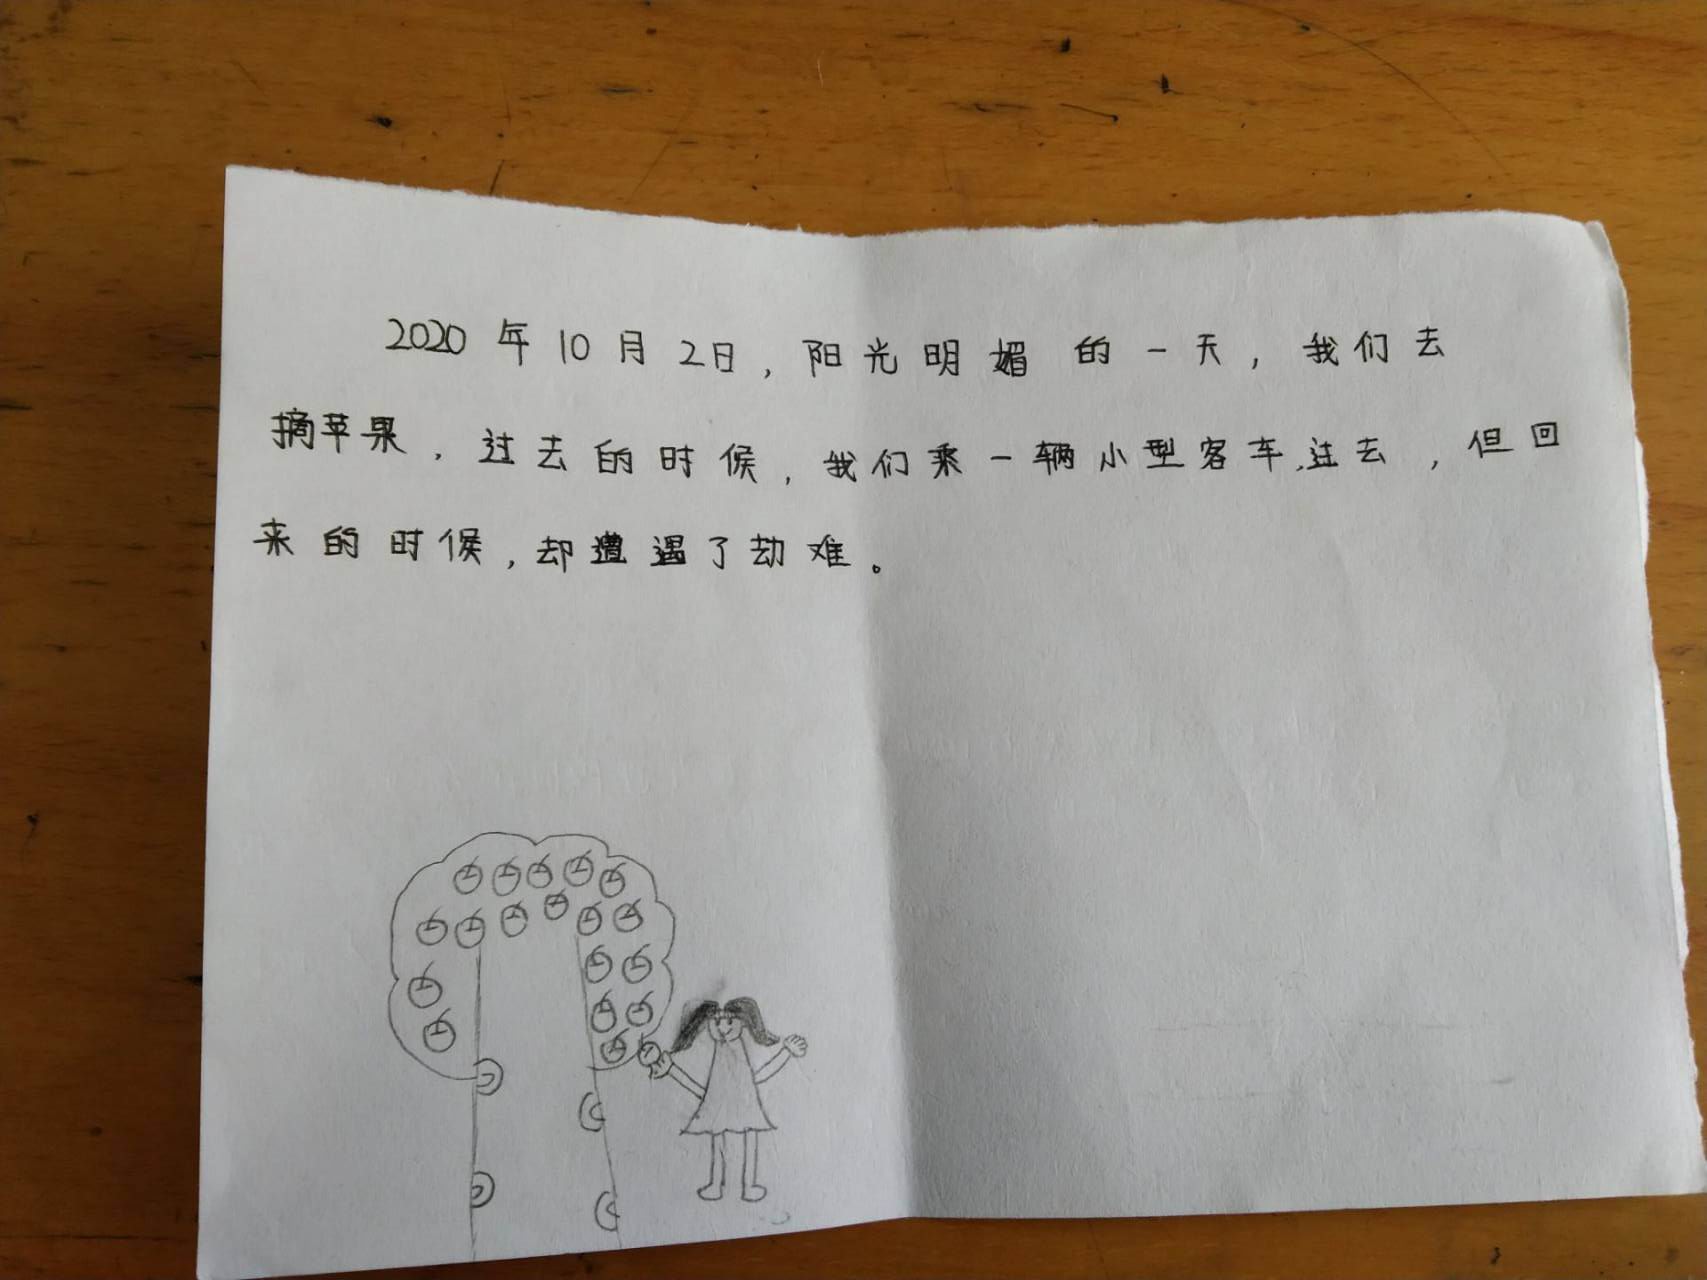 2020年10月2日，阳光明媚的一天，我们去
摘苹果，过去的时候，我们乘一辆小型客车过去，但回
来的时候，却遭遇了劫难。